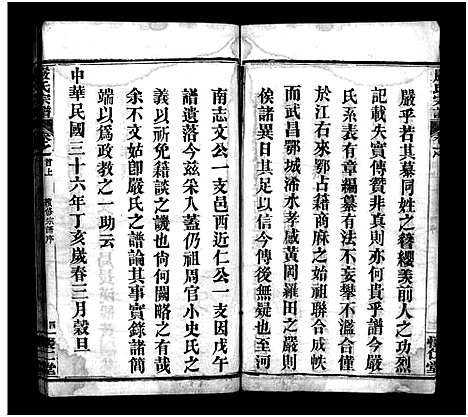 嚴氏宗譜
嚴乎若其慕同姓之簪纓羨前人之功烈
記載失實傳贊非真則亦何貴乎譜今嚴
氏系表有章編纂有法不妄攀不濫合僅
於江右來鄂占籍商麻之始祖聯合成帙
而武昌鄂城浠水孝感黃岡羅田之嚴則
俟諸異日其足以信今傳後無疑也至河
南志文公一支邑西近仁公一支因戊午
譜遺落今茲采入蓋仍祖周官小史氏之
義以祈免籍談之譏也倘何闕略之有哉
余不文姑卽嚴氏之譜論其事實錄諸簡
端以為政教之一助云
中華民國三十六年丁亥歲春三月穀旦
嚴氏宗譜
卷之首上
續修宗譜序
四